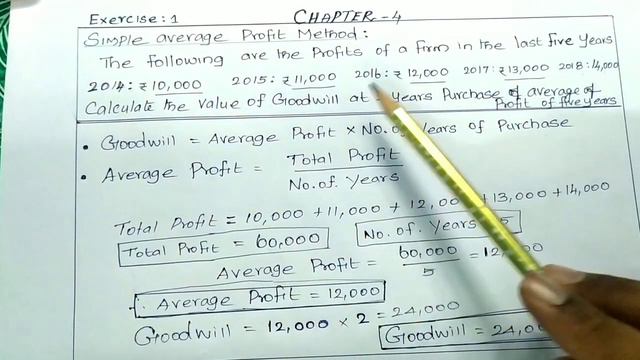 Exercise: 1 CHAPTER-4
Simple average Profit Method:
The following are the Profits of a firm in the last five years
2014: ₹ 10,000 2015: ₹ 11,000 2016: ₹ 12,000 2017: ₹ 13,000 2018: 14,000
Calculate the value of Goodwill at years Purchase of average of
Profit of five years
• Goodwill = Average Profit × No. of Years of Purchase
• Average Profit = Total Profit
No. of. Years
Total Profit = 10,000 + 11,000 + 12,000 + 13,000 + 14,000
Total Profit = 60,000 No. of. Years
Average Profit = 60,000 = 12,
5
∴ Average Profit = 12,000
Goodwill = 12,000 × 2 = 24,000
Goodwill = 24,0